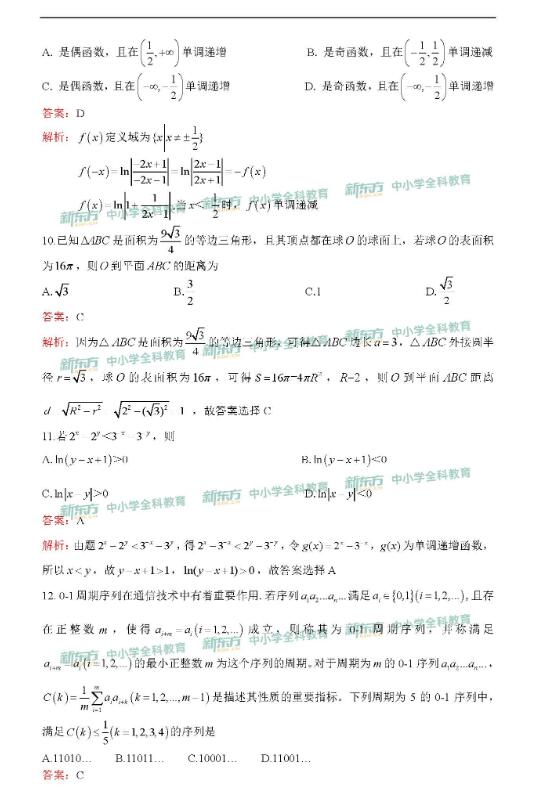 A. 是偶函数，且在(1/2,+∞)单调递增 B. 是奇函数，且在(-1/2,1/2)单调递减
C. 是偶函数，且在(-∞,-1/2)单调递增 D. 是奇函数，且在(-∞,-1/2)单调递增
答案：D
解析： f(x)定义域为{x|x≠±1/2}
f(-x)=ln|(-2x+1)/(-2x-1)|=ln|(2x-1)/(2x+1)|=-f(x)
f(x)=ln|1+1/(2x 1)|,当x<-1/2时， f(x)单调递减
10.已知△ABC是面积为9√3/4的等边三角形，且其顶点都在球O的球面上，若球O的表面积
为16π，则O到平面ABC的距离为
A.√3 B.3/2 C.1 D.√3/2
答案：C
解析：因为△ABC是面积为9√3/4的等边三角形，可得△ABC边长a=3，△ABC外接圆半
径r=√3，球O的表面积为16π，可得S=16π=4πR²，R=2，则O到平面ABC距离
d √(R²-r²) √(2²-(√3)²) 1 ，故答案选择C
11.若2^x 2^y<3^-x 3^-y，则
A.ln(y-x+1)>0 B.ln(y-x+1)<0
C.ln|x y|>0 D.ln|x y|<0
答案：A
解析：由题2^x-2^y<3^-x-3^-y，得2^x-3^-x<2^y-3^-y，令g(x)=2^x-3^-x，g(x)为单调递增函数，
所以x<y，故y-x+1>1，ln(y-x+1)>0，故答案选择A
12. 0-1周期序列在通信技术中有着重要作用.若序列a₁a₂…aₙ…满足aᵢ∈{0,1}(i=1,2,…),且存
在正整数m，使得aᵢ₊ₘ=aᵢ(i=1,2,…)成立，则称其为0-1周期序列，并称满足
aᵢ₊ₘ=aᵢ(i=1,2,…)的最小正整数m为这个序列的周期。对于周期为m的0-1序列a₁a₂…aₙ…，
C(k)=1/m∑(i=1,m)aᵢaᵢ₊ₖ(k=1,2,…,m-1)是描述其性质的重要指标。下列周期为5的0-1序列中，
满足C(k)≤1/5(k=1,2,3,4)的序列是
A.11010… B.11011… C.10001… D.11001…
答案：C
新东方 中小学全科教育
新东方 中小学全科教育
新东方 中小学全科教育
新东方 中小学全科教育
新东方 中小学全科教育
新东方 中小学全科教育
新东方 中小学全科教育
新东方 中小学全科教育